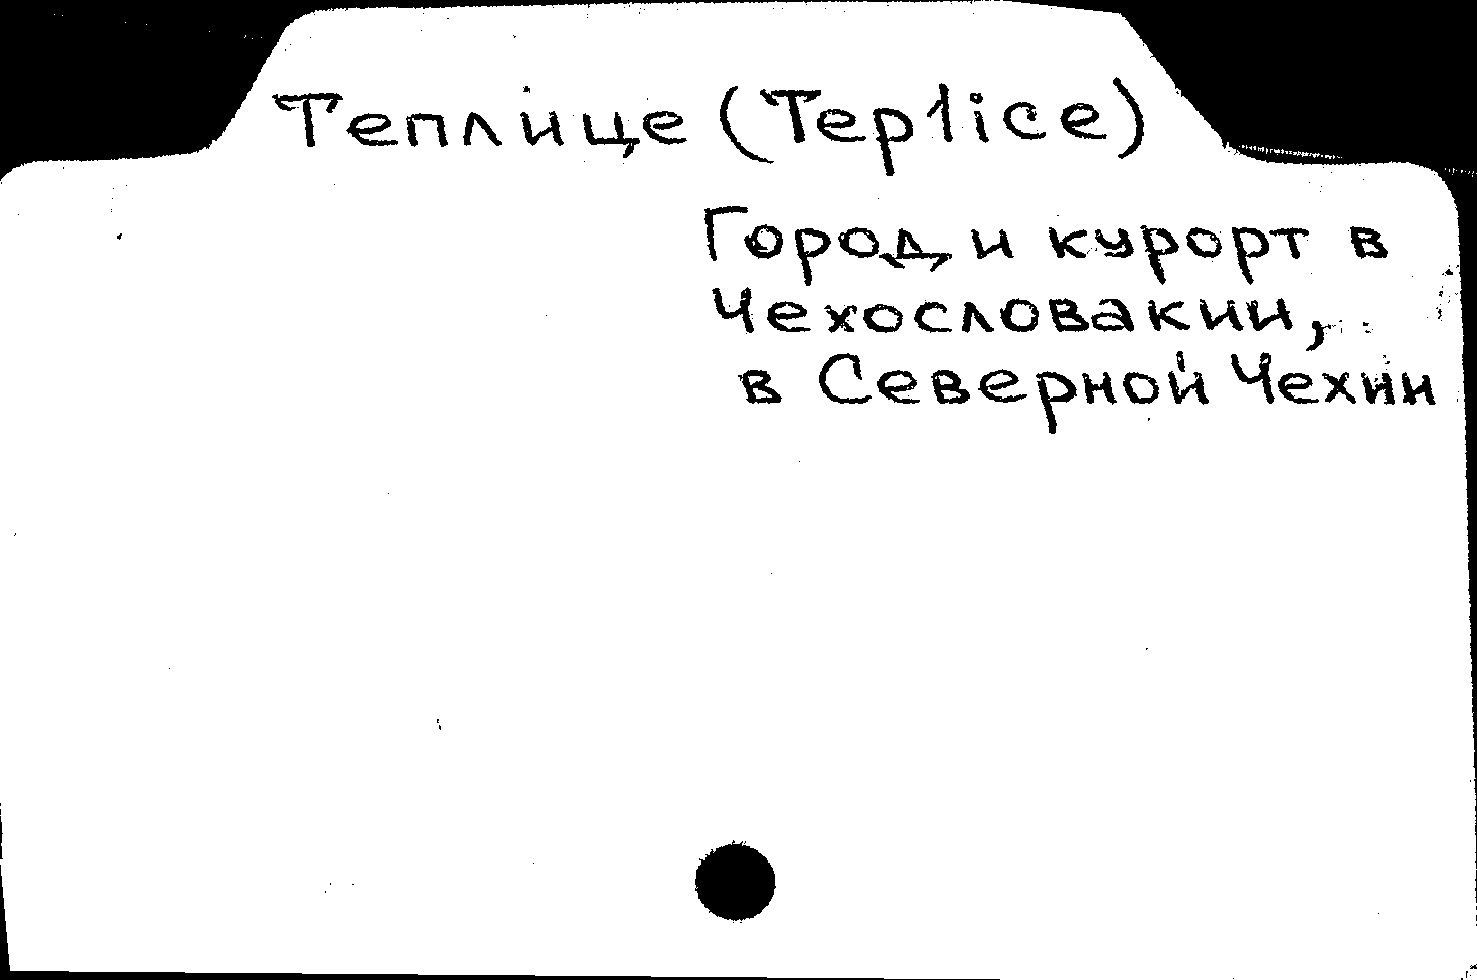 Теплице (Teplice)
Город и курорт в
Чехословакии,
в Северной Чехии